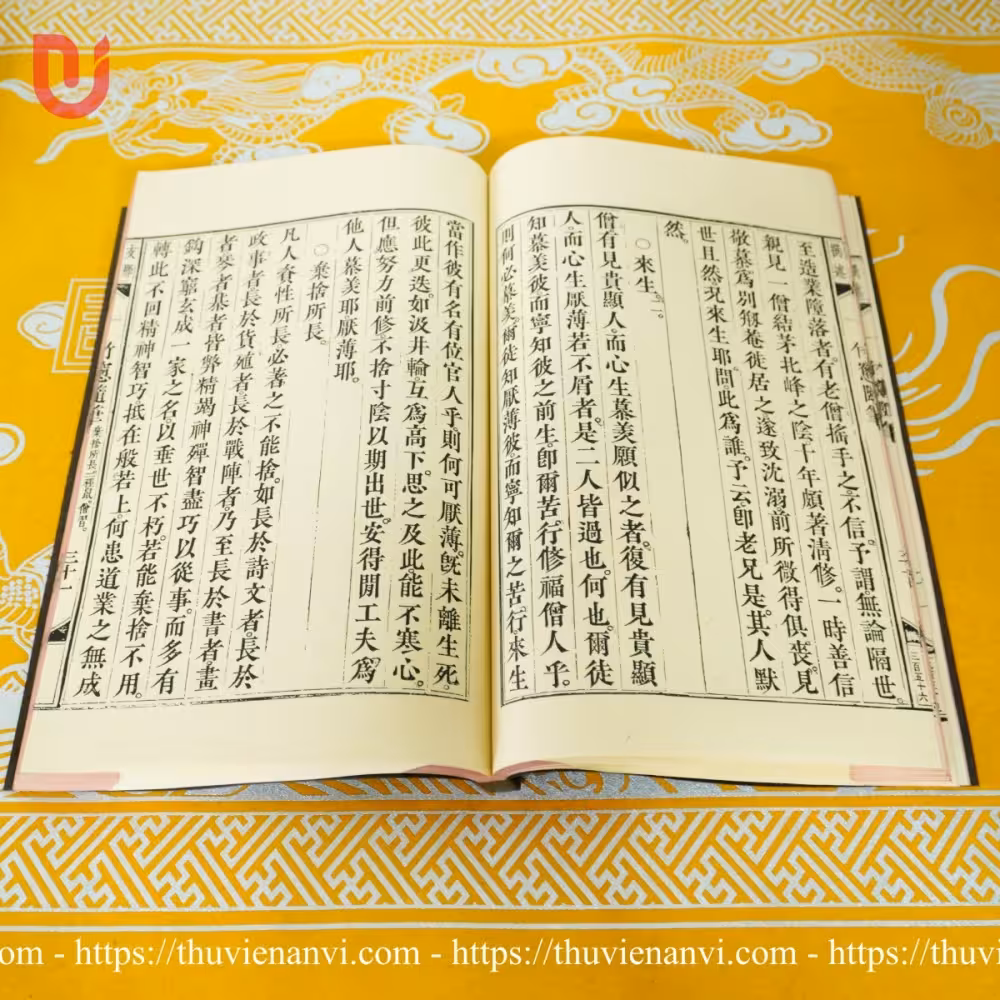 三百五十六
至造業障落者。有老僧搖手之。不信。予謂無論隔世。
親見一僧結茅北峰之陰十年頗著清修。一時善信
敬慕爲別剏菴徙居之。遂致沈溺前所微得俱喪。見
世且然。况來生耶。問。此爲誰。予云。卽老兄是。其人默
然。
○來生二。
僧有見貴顯人。而心生慕羨願似之者。復有見貴顯
人。而心生厭薄若不屑者。是二人皆過也。何也。爾徒
知慕羨彼。而寧知彼之前生。卽爾苦行修福僧人乎。
則何必慕羨。爾徒知厭薄彼。而寧知爾之苦行。來生
當作彼有名有位官人乎。則何可厭薄。旣未離生死。
彼此更迭。如汲井輪。互爲高下。思之及此。能不寒心。
但應努力前修。不捨寸陰以期出世。安得閒工夫爲
他人慕羨耶。厭薄耶。
○棄捨所長。
凡人資性所長必著之不能捨。如長於詩文者。長於
政事者。長於貨殖者。長於戰陣者。乃至長於書者。畫
者。琴者。棊者。皆弊精竭神。殫智盡巧以從事。而多有
鈎深窮玄。成一家之名。以垂世不朽。若能棄捨不用。
轉此不回精神智巧。抵在般若上。何患道業之無成
竹窗
三十一
om - https://thuvienanvi.com - https://thuvienanvi.com - https://thuvi